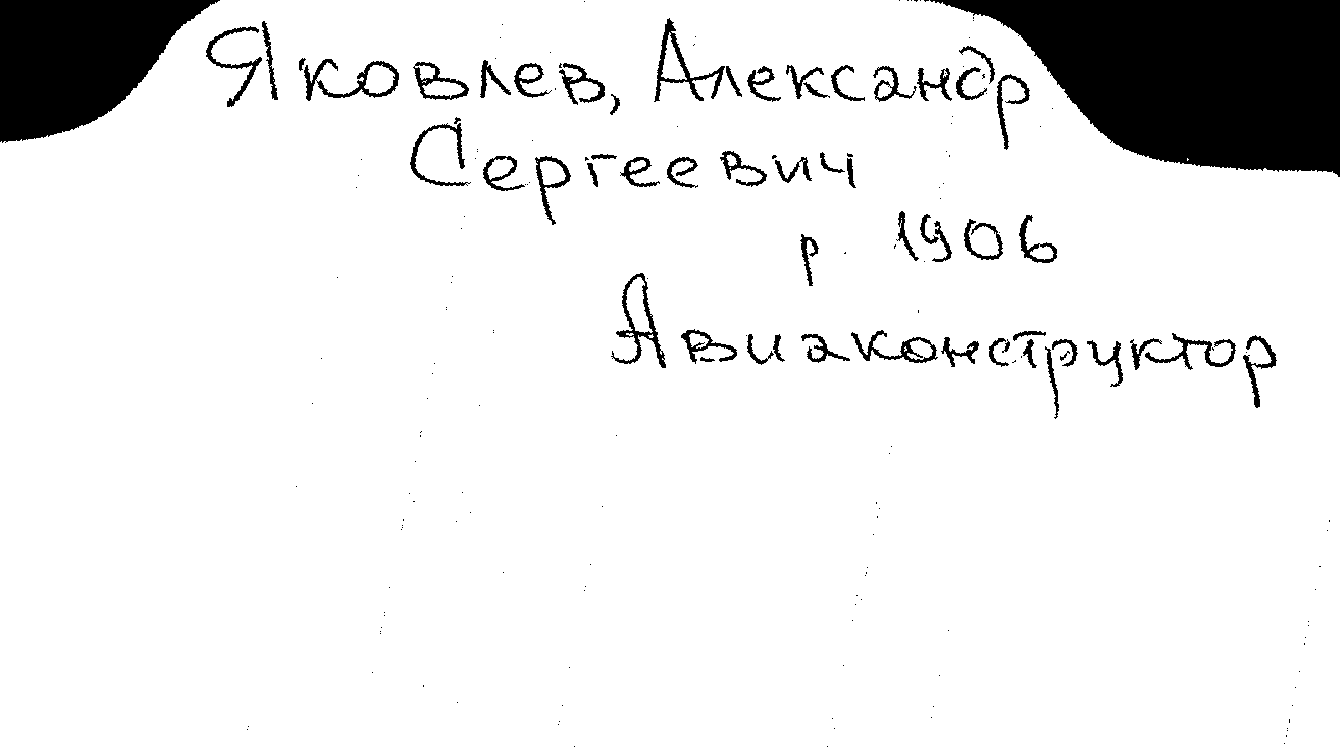 Яковлев, Александр
Сергеевич
р. 1906
Авиаконструктор